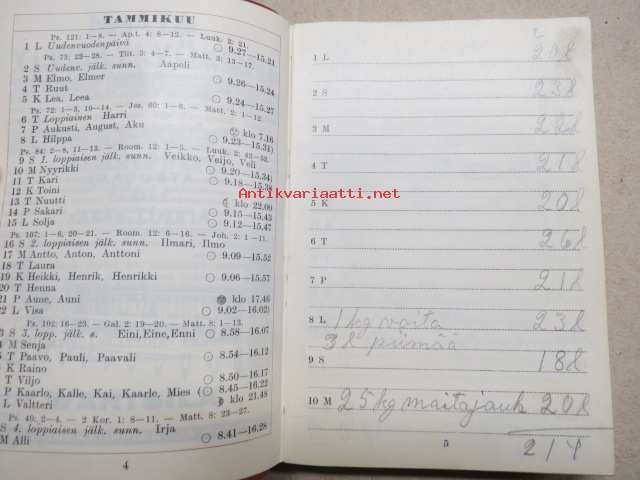 TAMMIKUU
Ps. 121: 1—8. — Ap.t. 4: 8—12. — Luuk. 2: 21.
1 L Uudenvuodenpäivä 9.27—15.21
Ps. 73: 23—28. — Tiit. 3: 4—7. — Matt. 3: 13—17.
2 S Uudenv. jälk. sunn. Aapeli
3 M Elmo, Elmer 9.26—15.24
4 T Ruut
5 K Lea, Leea 9.24—15.27
Ps. 72: 1—3, 10—14. — Jes. 60: 1—6. — Matt. 2: 1—12.
6 T Loppiainen Harri
7 P Aukusti, August, Aku klo 7.16
8 L Hilppa 9.23—15.31)
Ps. 84: 2—8, 11—13. — Room. 12: 1—5. — Luuk. 2: 42—52.
9 S 1. loppiaisen jälk. sunn. Veikko, Veijo, Veli
10 M Nyyrikki 9.20—15.34)
11 T Kari 9.18—15.38
12 K Toini
13 T Nuutti klo 22.09
14 P Sakari 9.15—15.43
15 L Solja 9.12—15.47
Ps. 107: 1—6, 20—21. — Room. 12: 6—16. — Joh. 2: 1—11.
16 S 2. loppiaisen jälk. sunn. Ilmari, Ilmo
17 M Antto, Anton, Anttoni 9.09—15.52
18 T Laura
19 K Heikki, Henrik, Henrikki 9.06—15.57
20 T Henna
21 P Aune, Auni klo 17.46
22 L Visa 9.02—16.02)
Ps. 102: 16—23. — Gal. 2: 19—20. — Matt. 8: 1—13.
3 S 3. lopp. jälk. s. Eini, Eine, Enni 8.58—16.07
4 M Senja
5 T Paavo, Pauli, Paavali 8.54—16.12
K Raino
T Viljo 8.50—16.17
P Kaarlo, Kalle, Kai, Kaarle, Mies 8.45—16.22
L Valtteri klo 21.48
Ps. 40: 2—4. — 2 Kor. 1: 8—11. — Matt. 8: 23—27.
S 4. loppiaisen jälk. sunn. Irja
M Alli 8.41—16.28
4
1 L 208
2 S 238
3 M 228
4 T 218
5 K 208
6 T 268
7 P 218
8 L 1 kg voita 238
piimää
9 S 188
10 M 25 kg maitojauh 208
5
214
Antikvariaatti.net